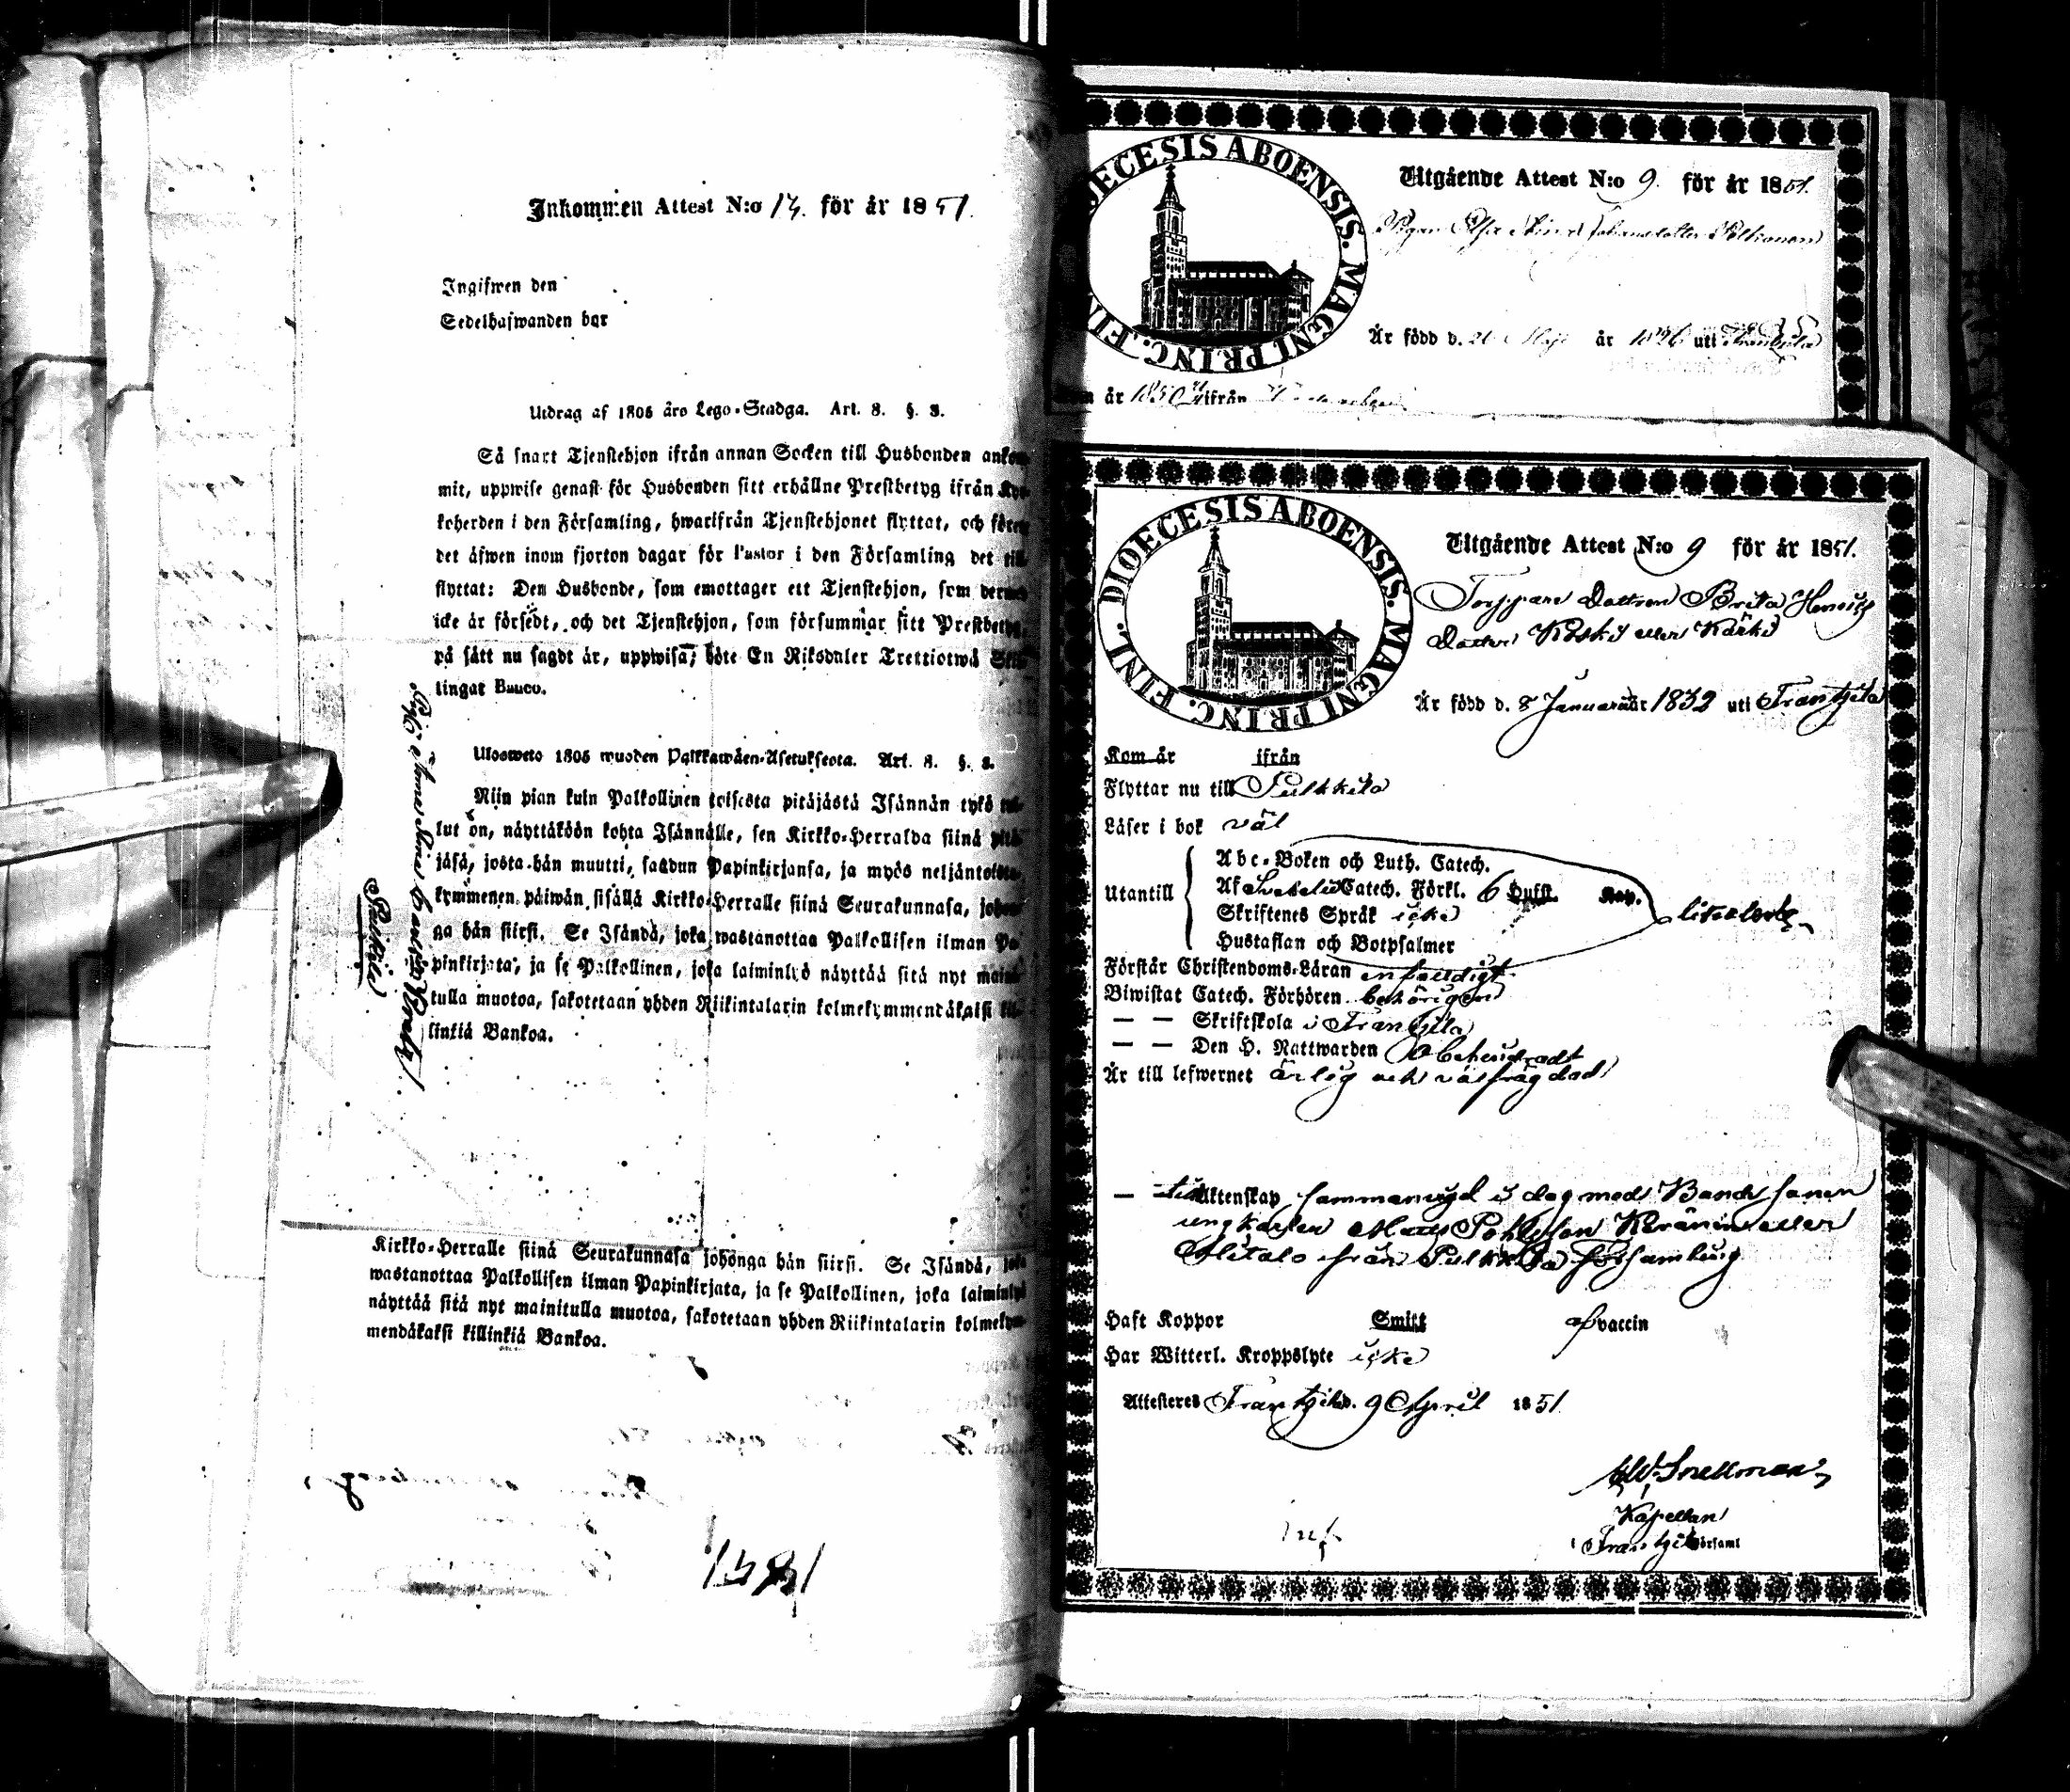 Inkommen Attest N:o 14. för år 1851.
Ingifwen den
Sedelhafwanden bor
Utdrag af 1805 års Lego-Stadga. Art. 8. §. 3.
Så snart Tjenstehjon ifrån annan Socken till Husbonden
mit, uppwise genast för Husbonden sitt erhållne Prestbetyg ifrån
koherden i den Församling, hwarifrån Tjenstehjonet flyttat, och
det äfwen inom fjorton dagar för Pastor i den Församling det
flyttat: Den Husbonde, som emottager ett Tjenstehjon, som
icke är försedt, och det Tjenstehjon, som försummar sitt Prestbetyg,
på sätt nu sagdt är, uppwisa; böte En Riksdaler Trettiotwå
lingar Banco.
Ulosweto 1805 wuoden Palkkawäen-Asetuksesta. Art. 8. §. 3.
Niin pian kuin Palkollinen toisesta pitäjästä Isännän tykö
lut on, näyttäköön kohta Isännälle, sen Kirkko-Herralda siinä
jäsä, josta hän muutti, saadun Papinkirjansa, ja myös neljäntoista
kymmenen päiwän sisällä Kirkko-Herralle siinä Seurakunnasa,
ga hän siirsi. Se Isändä, joka wastanottaa Palkollisen ilman
pinkirjata, ja se Palkollinen, joka laiminlyö näyttää sitä nyt
tulla muotoa, sakotetaan yhden Riikintalarin kolmekymmendäkaksi
linkiä Bankoa.
Kirkko-Herralle siinä Seurakunnasa johonga hän siirsi. Se Isändä,
wastanottaa Palkollisen ilman Papinkirjata, ja se Palkollinen, joka laiminlyö
näyttää sitä nyt mainitulla muotoa, sakotetaan yhden Riikintalarin
mendäkaksi killinkiä Bankoa.
1851
DIOECESIS ABOENSIS. MAGNI PRINC. FINL.
Utgående Attest N:o 9. för år 1851.
Pigan Johansdotter
Är född d. 26 Maji år 1826 uti Frantzila
år 1850 ifrån
DIOECESIS ABOENSIS. MAGNI PRINC. FINL.
Utgående Attest N:o 9 för år 1851.
Torppare Dottren Brita Henriks
Dotter Koski eller Kärki
Är född d. 8 Januarii år 1832 uti Frantzila
Kom år ifrån
Flyttar nu till Pulkkila
Läser i bok väl
Utantill
Abc-Boken och Luth. Catech.
Af Svebelii Catech. Förkl. 6 Hufst. Kap.
Skriftenes Språk icke
Hustaflan och Botpsalmer
Förstår Christendoms-Läran enfaldigt
Biwistat Catech. Förhören behörigen
— — Skriftskola i Frantzila
— — Den H. Nattwarden obehindradt
Är till lefwernet ärlig och välfrägdad
— till Äktenskap sammanvigd i dag med Bondesonen
ungkarlen Matts eller
Alitalo från Pulkkila församling
Haft Koppor Smitt af vaccin
Har Witterl. Kroppslyte icke
Attesteres Frantzila d. 9 April 1851.
Snellman
Kapellan
i Frantzila Församl